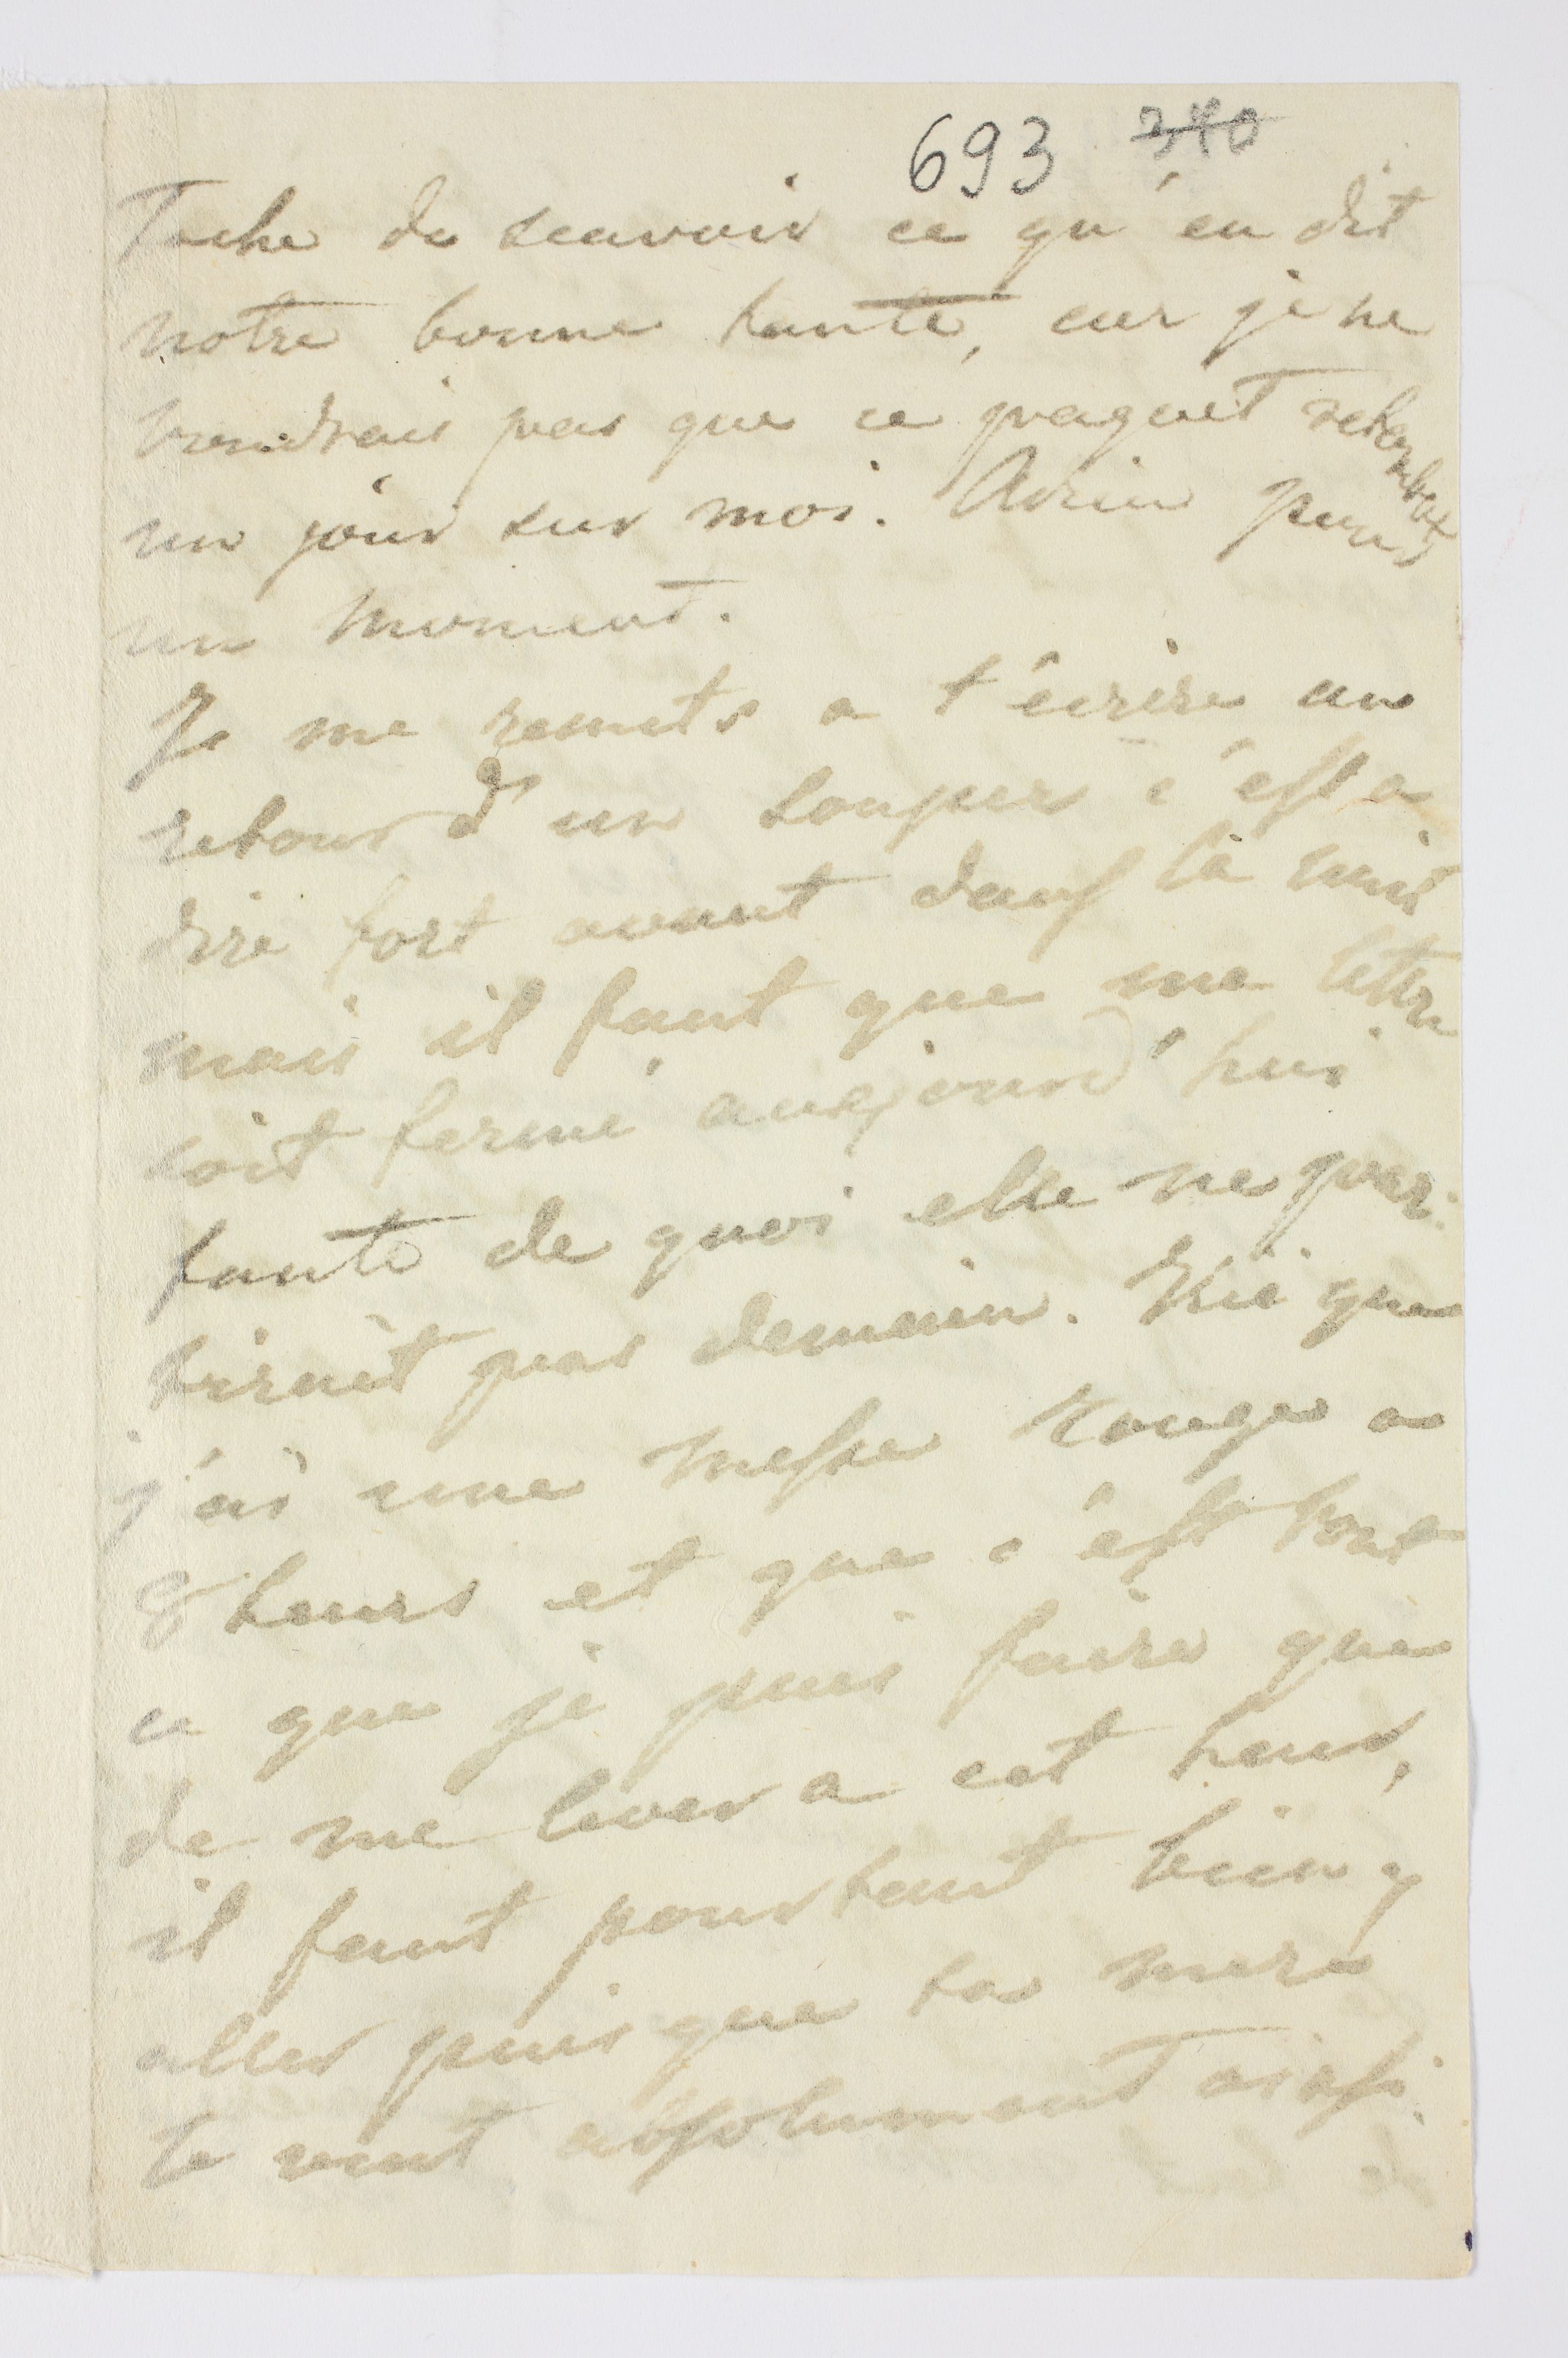 693 340
Tache de scavoir ce qu'en dit
notre bonne tante, car je ne
voudrais pas que ce paquet retombat
un jour sur moi. Adieu pour
un moment.
Je me remets a t'écrire au
retour d'un souper c'est a
dire fort avant dans la nuit
mais il faut que ma lettre
soit fermé aujourd'hui
faute de quoi elle ne par-
tiroit pas demain. Vu que
j'ai une messe rouge a
8 heurs et que c'est tout
ce que je puis faire que
de me lever a cet heur,
il faut pourtant bien y
aller puis que ta mere
le veut absolument ainsi.